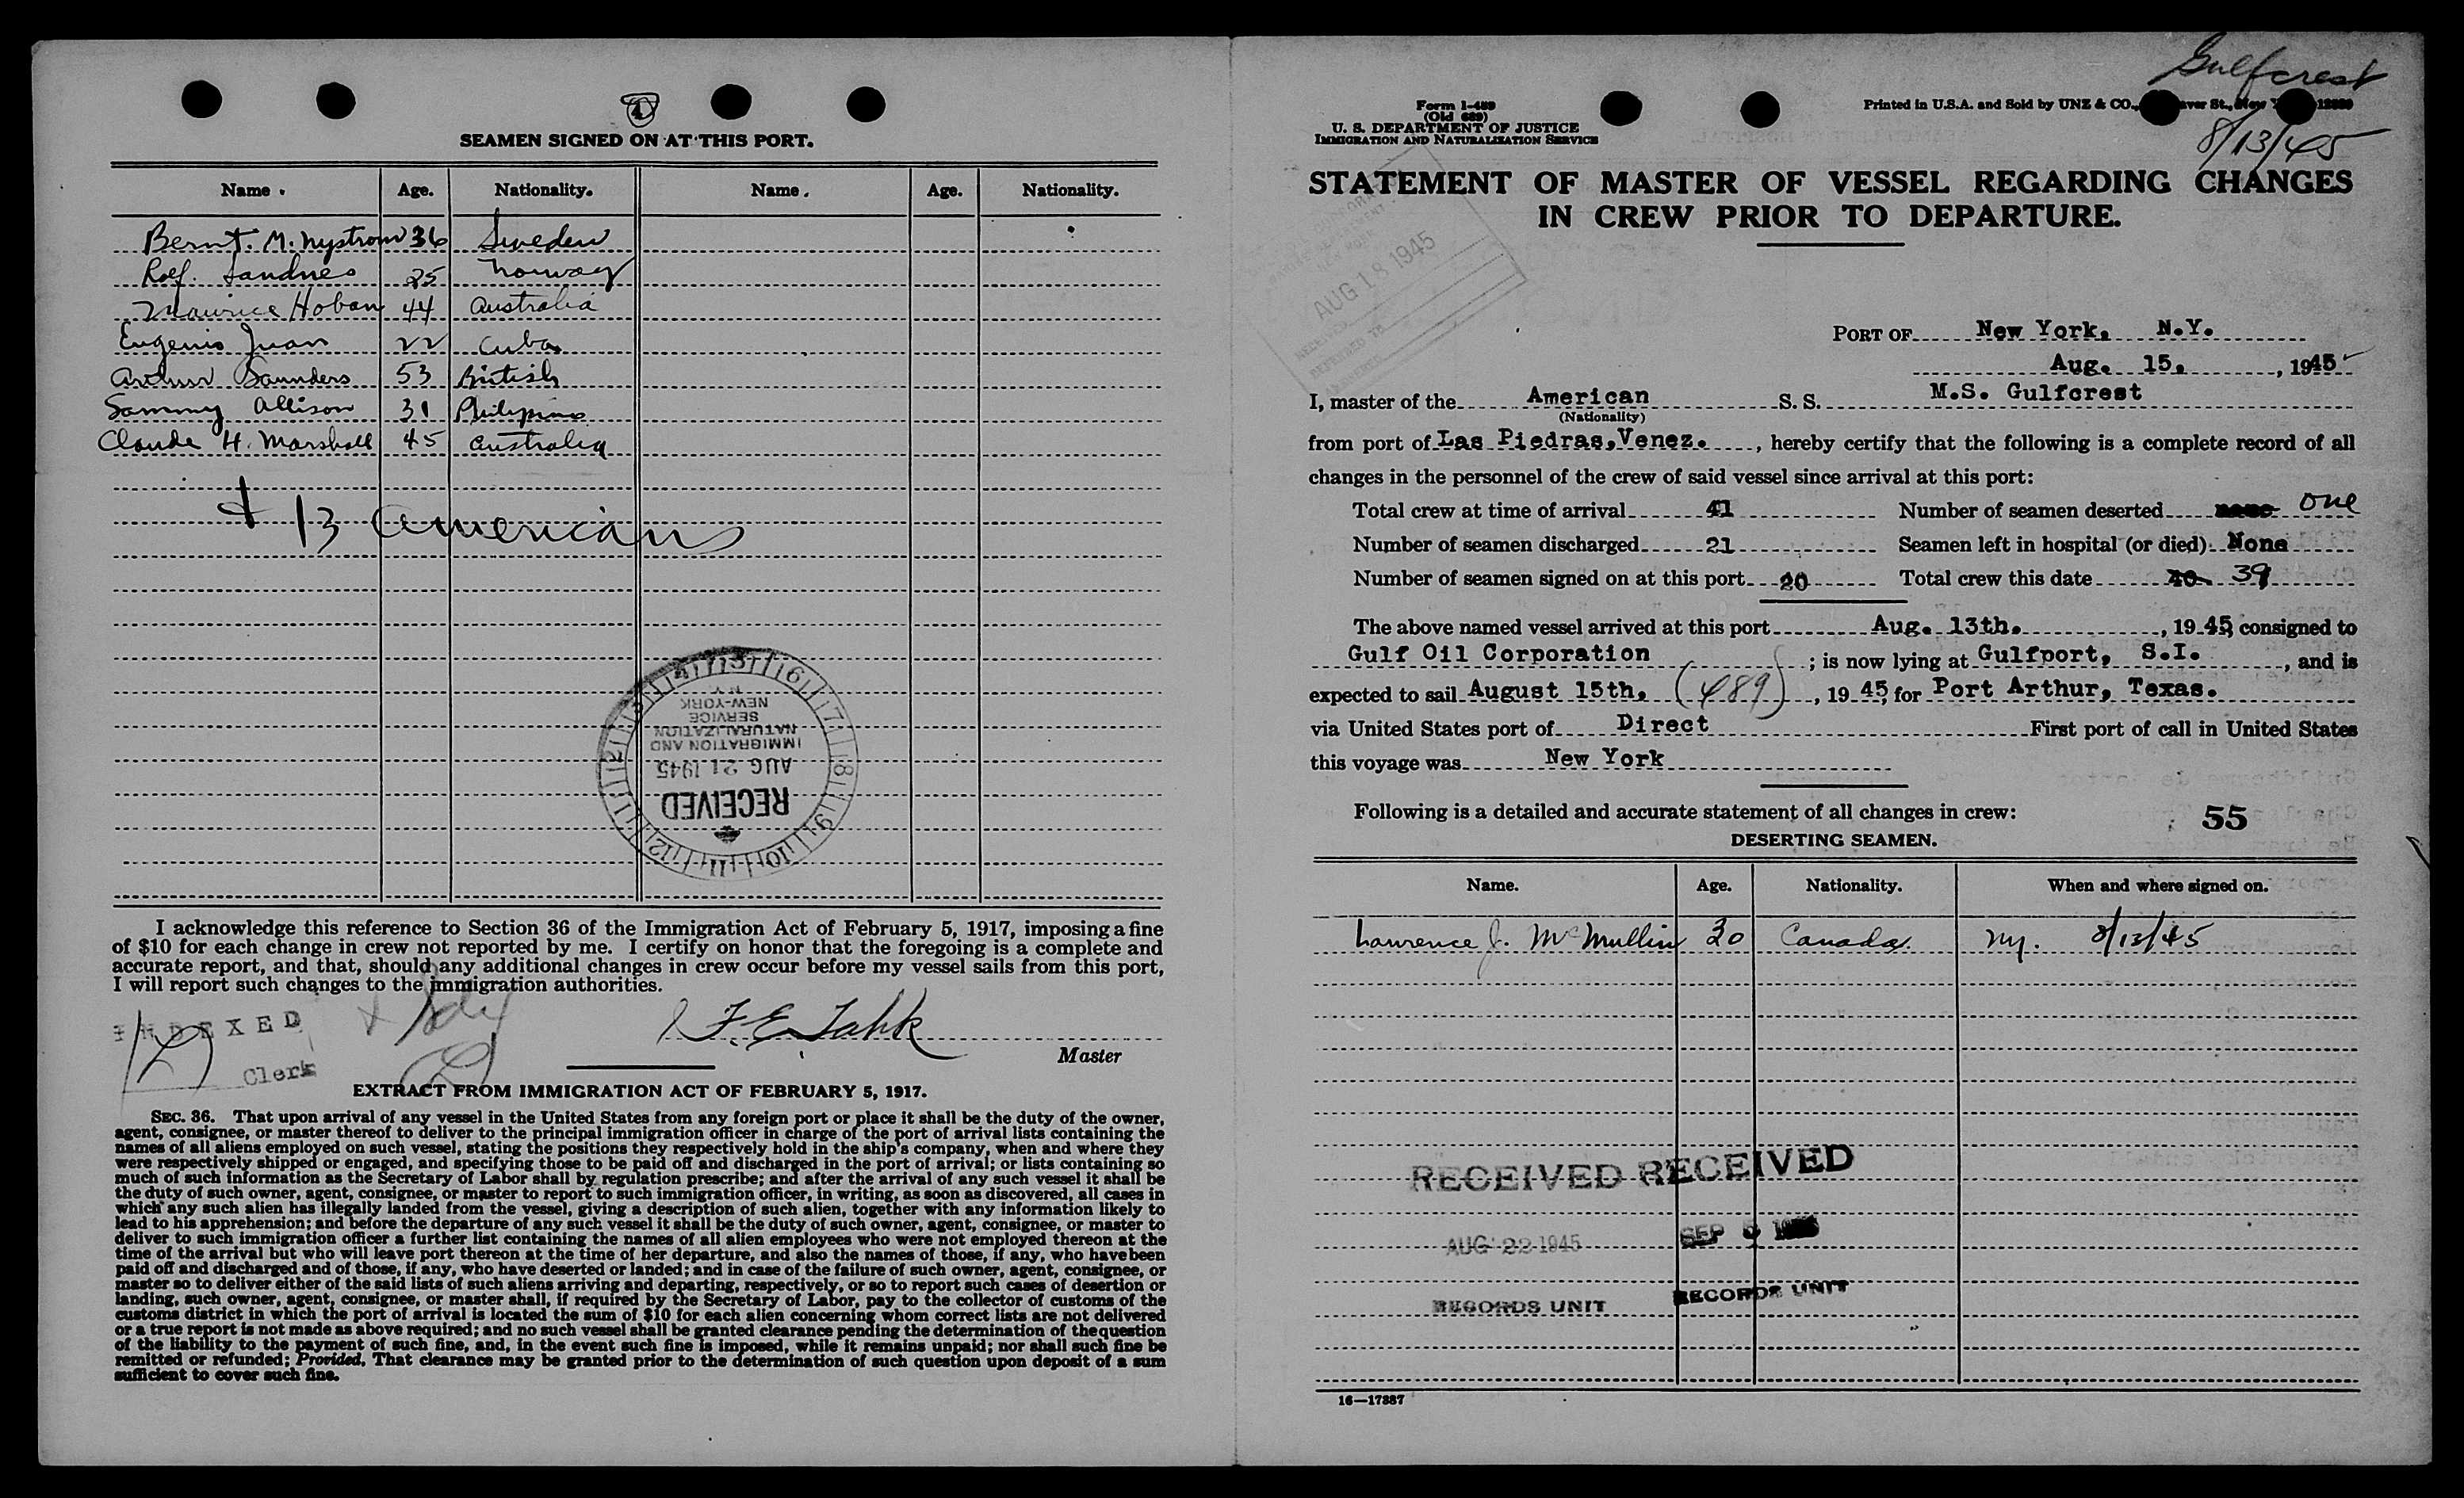 4
SEAMEN SIGNED ON AT THIS PORT.
Name. Age. Nationality. Name. Age. Nationality.
Bernt. M. Nystrom 36 Sweden
Rolf. Sandnes 25 Norway
Maurice Hoban 44 Australia
Eugenio Juan 22 Cuba
Arthur Saunders 53 British
Sammy Allison 31 Philipino
Claude H. Marshall 45 Australia
+ 13 Americans
IMMIGRATION AND
NATURALIZATION
SERVICE
NEW-YORK
N.Y.
AUG 21 1945
RECEIVED
I acknowledge this reference to Section 36 of the Immigration Act of February 5, 1917, imposing a fine
of $10 for each change in crew not reported by me. I certify on honor that the foregoing is a complete and
accurate report, and that, should any additional changes in crew occur before my vessel sails from this port,
I will report such changes to the immigration authorities.
INDEXED
Clerk
F. E. Tahk
Master
EXTRACT FROM IMMIGRATION ACT OF FEBRUARY 5, 1917.
SEC. 36. That upon arrival of any vessel in the United States from any foreign port or place it shall be the duty of the owner,
agent, consignee, or master thereof to deliver to the principal immigration officer in charge of the port of arrival lists containing the
names of all aliens employed on such vessel, stating the positions they respectively hold in the ship's company, when and where they
were respectively shipped or engaged, and specifying those to be paid off and discharged in the port of arrival; or lists containing so
much of such information as the Secretary of Labor shall by regulation prescribe; and after the arrival of any such vessel it shall be
the duty of such owner, agent, consignee, or master to report to such immigration officer, in writing, as soon as discovered, all cases in
which any such alien has illegally landed from the vessel, giving a description of such alien, together with any information likely to
lead to his apprehension; and before the departure of any such vessel it shall be the duty of such owner, agent, consignee, or master to
deliver to such immigration officer a further list containing the names of all alien employees who were not employed thereon at the
time of the arrival but who will leave port thereon at the time of her departure, and also the names of those, if any, who have been
paid off and discharged and of those, if any, who have deserted or landed; and in case of the failure of such owner, agent, consignee, or
master so to deliver either of the said lists of such aliens arriving and departing, respectively, or so to report such cases of desertion or
landing, such owner, agent, consignee, or master shall, if required by the Secretary of Labor, pay to the collector of customs of the
customs district in which the port of arrival is located the sum of $10 for each alien concerning whom correct lists are not delivered
or a true report is not made as above required; and no such vessel shall be granted clearance pending the determination of the question
of the liability to the payment of such fine, and, in the event such fine is imposed, while it remains unpaid; nor shall such fine be
remitted or refunded; Provided, That clearance may be granted prior to the determination of such question upon deposit of a sum
sufficient to cover such fine.
Gulfcrest
8/13/45
Form I-489
(Old 689)
U. S. DEPARTMENT OF JUSTICE
IMMIGRATION AND NATURALIZATION SERVICE
Printed in U.S.A. and Sold by UNZ & CO.,
STATEMENT OF MASTER OF VESSEL REGARDING CHANGES
IN CREW PRIOR TO DEPARTURE.
AUG 18 1945
PORT OF New York, N.Y.
Aug. 15, , 1945
I, master of the American S. S. M.S. Gulfcrest
(Nationality)
from port of Las Piedras, Venez. , hereby certify that the following is a complete record of all
changes in the personnel of the crew of said vessel since arrival at this port:
Total crew at time of arrival 41 Number of seamen deserted none one
Number of seamen discharged 21 Seamen left in hospital (or died) None
Number of seamen signed on at this port 20 Total crew this date 40 39
The above named vessel arrived at this port Aug. 13th. , 1945, consigned to
Gulf Oil Corporation ; is now lying at Gulfport, S.I. , and is
expected to sail August 15th, (489) , 1945, for Port Arthur, Texas.
via United States port of Direct First port of call in United States
this voyage was New York
Following is a detailed and accurate statement of all changes in crew: 55
DESERTING SEAMEN.
Name. Age. Nationality. When and where signed on.
Lawrence J. McMullin 30 Canada. NY. 8/13/45
RECEIVED RECEIVED
AUG 22 1945 SEP 5
RECORDS UNIT RECORDS UNIT
16—17387